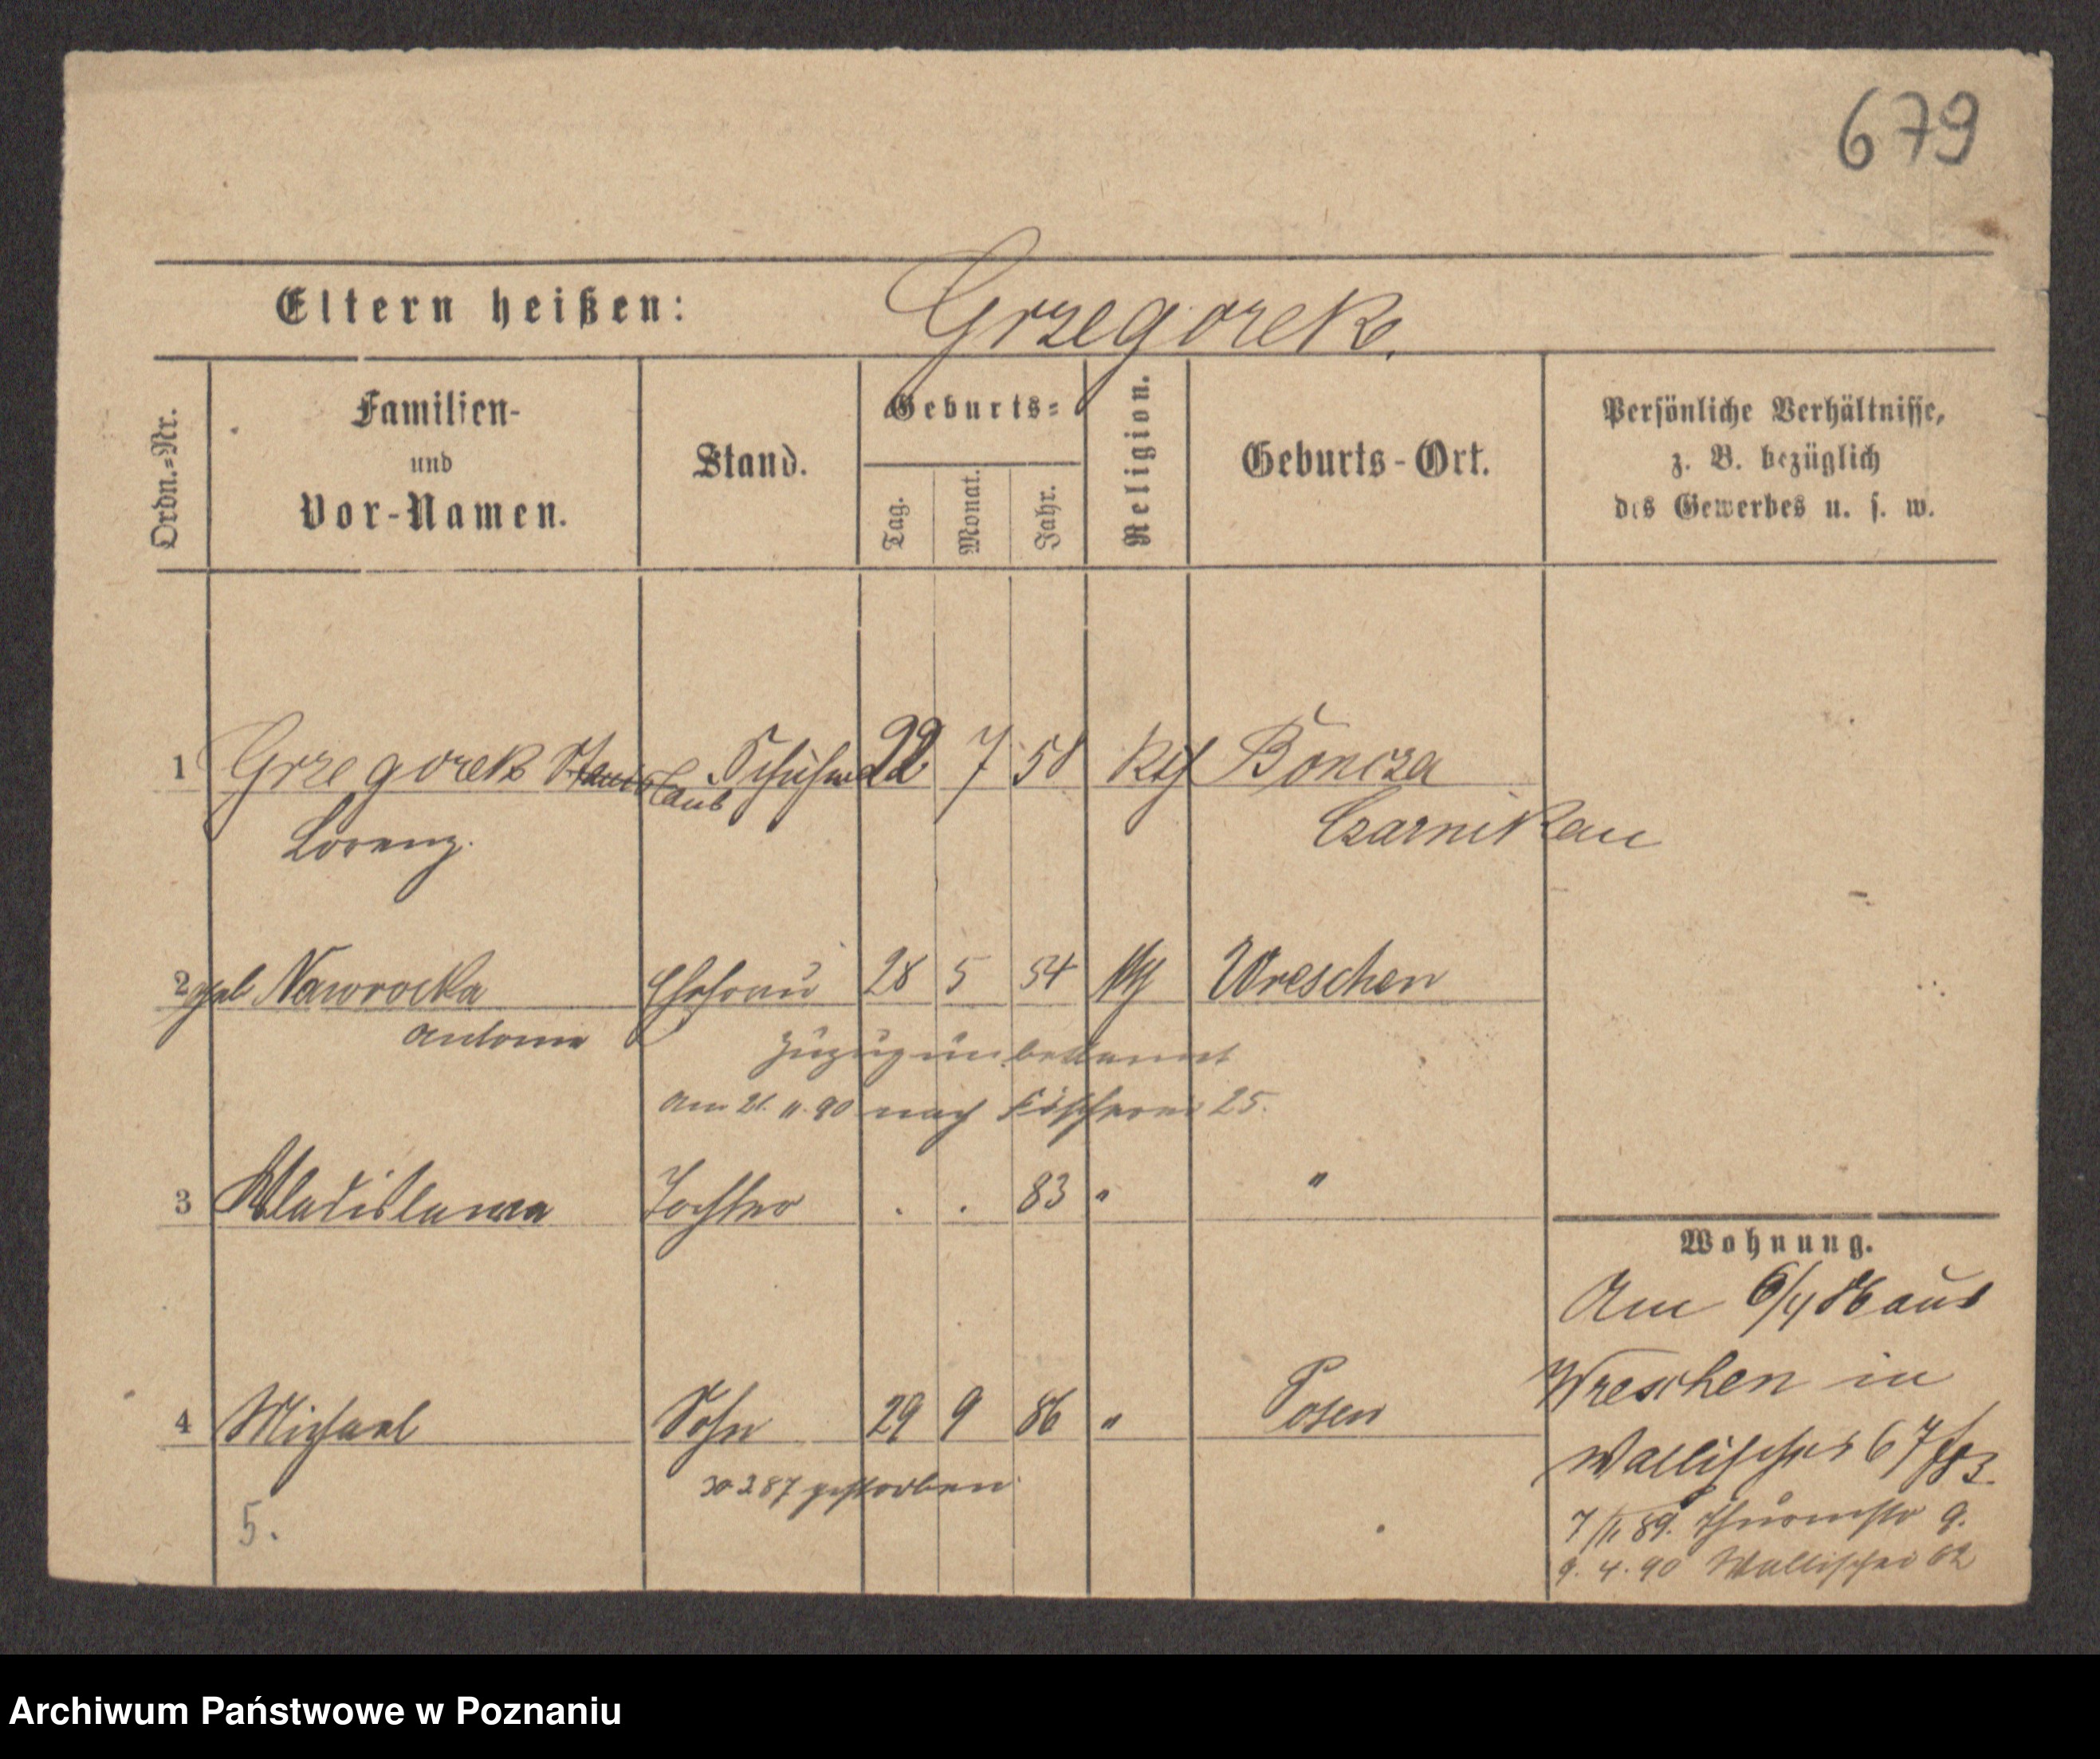 679
Eltern heißen: Grzegorek.
Ordn.=Nr.
Familien-
und
Vor-Namen.
Stand.
Geburts=
Tag.
Monat.
Jahr.
Religion.
Geburts-Ort.
Persönliche Verhältnisse,
z. B. bezüglich
des Gewerbes u. s. w.
1 Grzegorek Stanislaus Schuhm 22 7 58 Kth Boncza
Lorenz. Czarnikau
2 geb Nawrocka Ehefrau 28 5 54 Kth Wreschen
Antonie
Zuzug unbekannt
am 21. 11. 90 nach Fischerei 25.
3 Wladislawa Tochter . . 83 " "
4 Michael Sohn 29 9 86 " Posen
30 2 87 gestorben
5.
Wohnung.
Am 6/4 86 aus
Wreschen in
Wallischei 67
7/11 89. Thurmstr 9.
9. 4. 90 Wallischei 62
Archiwum Państwowe w Poznaniu